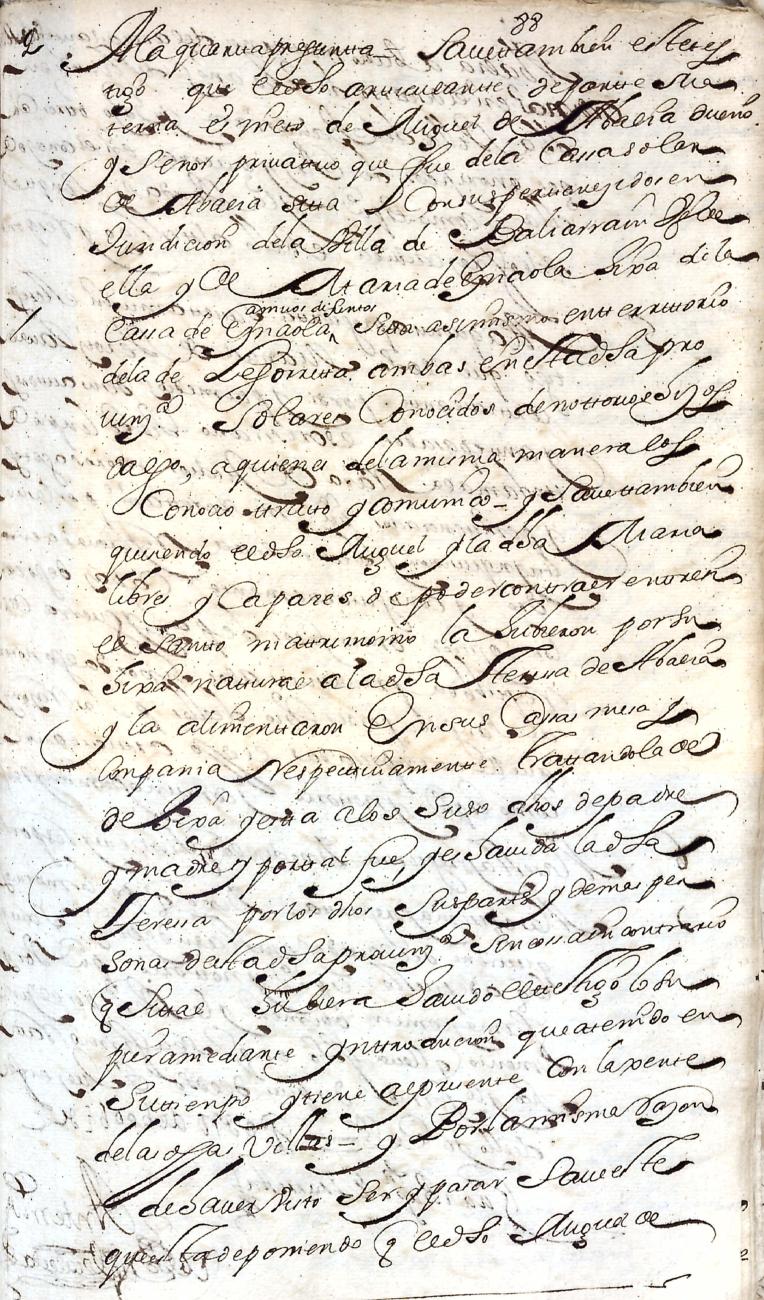 88
A la quarta pregunta = Save tambien este tes
tigo que el dho articulante de parte Ma
terna es nieto de Miguel de Abaeia dueño
y Señor privativo que fue de la Cassa solar
de Abaeia sita Con sus pertenezidos en
Juridicion de la Villa de Baliarrain
ella y de Maria de Ginaola hixa de la
amvos difuntos
Cassa de Ginaola sita asimismo en territorio
de la de Legorreta ambas en esta dha pro
uinzª Solares Conocidos de nottorios hijos
dalgo, a quienes de la misma manera los
Conocio tratto y comunico = y Save tambien
que siendo el dho Miguel y la dha Maria
libres y Capazes de poder contraer entre si
el santo matrimonio la hubieron por su
hixa natural a la dha Teresa de Abaeia
y la alimentaron En sus Cassas mesa y
Conpania Respectivamente Trattandola de
de hixa y esta a los suso dhos de padre
y madre y por tal fue, y es havida la dha
Teresa por los dhos sus partes y demas per
sonas de esta dha prouinzª sin cossa en contrario
q si tal hubiera havido el testigo lo su
piera mediante yntroducion que a tenido en
su tienpo y tiene al presente Con la xente
de las dhas Villas = y Por la misma Razon
de haver visto ser y pasar Save este
que esta deponiendo q el dho Miguel de